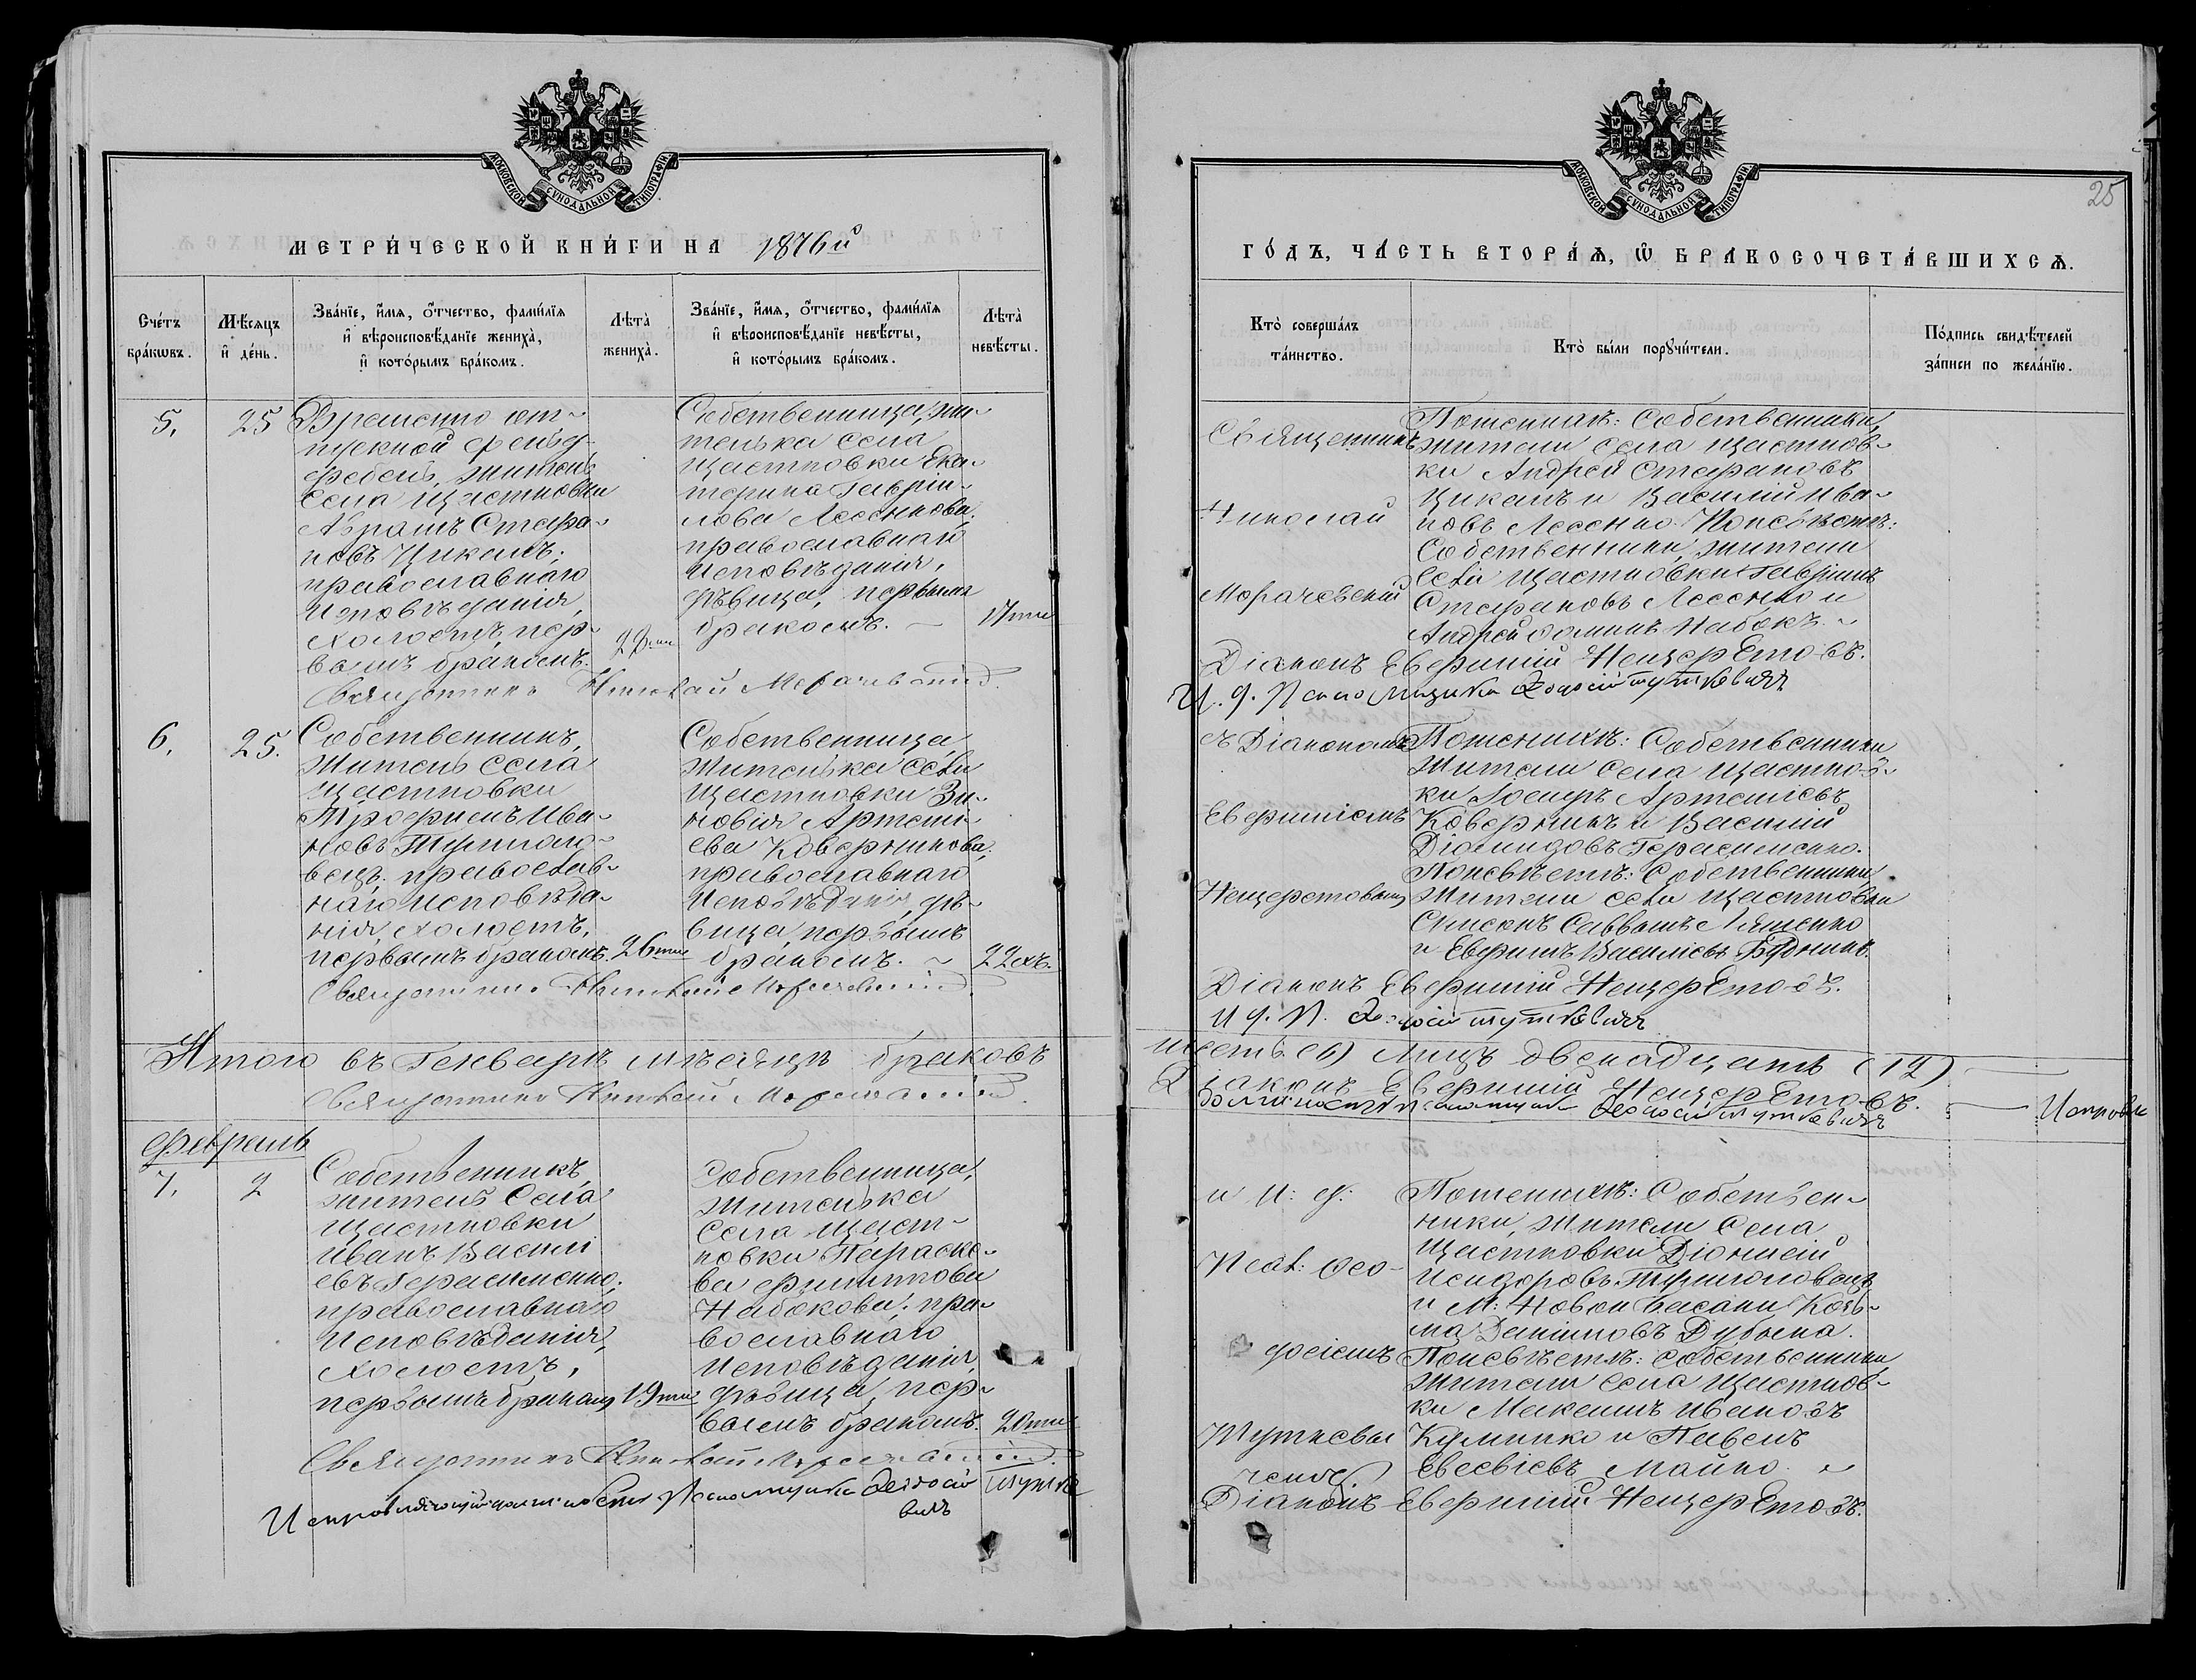 МОСКОВСКОЙ СѴНОДАЛЬНОЙ ТИПОГРАФІИ
МЕТРИ́ЧЕСКОЙ КНИ́ГИ НА 1876й
Сче́тъ бра́кѡвъ.
Мѣ́сяцъ и҆ де́нь.
Зва́нїе, и҆́мѧ, ѻ҆́тчество, фами́лїѧ
и҆ вѣроисповѣ́данїе жениха̀,
и҆ кото́рымъ бра́комъ.
Лѣта̀ жениха̀.
Зва́нїе, и҆́мѧ, ѻ҆́тчество, фами́лїѧ
и҆ вѣроисповѣ́данїе невѣ́сты,
и҆ кото́рымъ бра́комъ.
Лѣта̀ невѣ́сты.
5.
25
Временно от-
пускной фельд-
фебель, житель
села Щастновки
Абрамъ Стефа-
новъ Цикалъ;
православнаго
исповѣданія,
холостъ, пер-
вымъ бракомъ.
Собственница, жи-
телька села
Щастновки Ека-
терина Гаврии-
лова Лесенкова,
православнаго
исповѣданія,
дѣвица, первымъ
бракомъ. —
17ти
Священникъ Николай Морачевскій
6.
25.
Собственникъ,
житель села
Щастновки
Трофимъ Ива-
новъ
православ-
наго исповѣда-
нія, холостъ,
первымъ бракомъ.
26ти
Собственница,
жителька села
Щастновки Зи-
новія Артеміе-
ва Коверникова,
православнаго
исповѣданія, дѣ-
вица, первымъ
бракомъ. ~
22хъ.
Священникъ Николай Морачевскій
Итого въ Генварѣ мѣсяцѣ браковъ
Священникъ Николай Морачевскій
Февраль
7.
2
Собственникъ,
житель села
Щастновки
Иванъ Василі
евъ Герасименко;
православнаго
исповѣданія,
холостъ,
первымъ бракомъ
19ти
Собственница,
жителька
села Щаст-
новки Параске-
ва Филиппова
Набокова; пра-
вославнаго
исповѣданія
дѣвица, пер-
вымъ бракомъ.
20ти
Священникъ Николай Морачевскій.
Исправляющій должность Псаломщика Феодосій Шутке
вичъ
МОСКОВСКОЙ СѴНОДАЛЬНОЙ ТИПОГРАФІИ
25
ГО́ДЪ, ЧА́СТЬ ВТОРА́Ѧ, Ѡ҆ БРАКОСОЧЕТА́ВШИХСѦ.
Кто̀ соверша́лъ
та́инство.
Кто̀ бы́ли порꙋчи́тели.
По́дпись свидѣ́телей
за́писи по жела́нїю.
Священникъ
Николай
Морачевскій
По женихѣ: собственники,
жители села Щастнов-
ки Андрей Стефановъ
Цикалъ и Василій Ива-
новъ Лесенко. По невѣстѣ:
Собственники, жители
села Щастновки Гавриилъ
Стефановъ Лесенко и
Андрей Фоминъ Набокъ. ~
Діаконъ Евфимій Нещеретовъ.
И. д. Псаломщика Феодосій Шуткевичъ
съ Діакономъ
Евфиміемъ
Нещеретовымъ
По женихѣ: Собственники
жители села Щастнов-
ки Іосифъ Артеміевъ
Коверникъ и Василій
Діомидовъ Герасименко.
По невѣстѣ: Собственники,
жители села Щастновки
Симеонъ Саввинъ Ляшенко
и Евфимъ Василіевъ
Діаконъ Евфимій Нещеретовъ.
И. д. П. Феодосій Шуткевичъ
шесть (6) лицъ двенадцать (12) —
Діаконъ Евфимій Нещеретовъ.
должность Псаломщика Феодосій Шуткевичъ — Исправл
и И: д:
Псал: Фео-
досіемъ
Шуткеви
чемъ
По женихѣ: Собствен-
ники, жители села
Щастновки Діонисій
Исидоровъ
и М: Новой Басани Козь-
ма Даніиловъ
По невѣстѣ: собственники,
жители села Щастнов-
ки Максимъ Ивановъ
и Павелъ
Евсевіевъ Майко. ~
Діаконъ Евфимій Нещеретовъ.